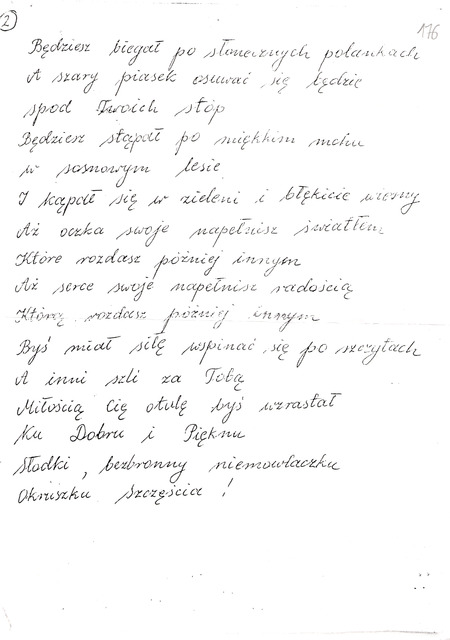 2
176
Będziesz biegał po słonecznych polankach
A szary piasek osuwać się będzie
spod Twoich stóp
Będziesz stąpał po miękkim mchu
w sosnowym lesie
I kąpał się w zieleni i błękicie wiosny
Aż oczka swoje napełnisz światłem
Które rozdasz później innym
Aż serce swoje napełnisz radością
Którą rozdasz później innym
Byś miał siłę wspinać się po szczytach
A inni szli za Tobą
Miłością Cię otulę byś wzrastał
Ku Dobru i Pięknu
Słodki, bezbronny niemowlaczku
Okruszku Szczęścia !